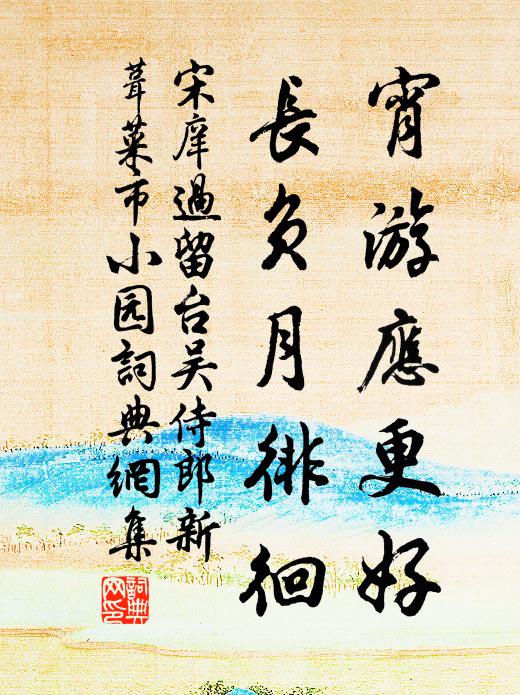 宵游應更好
長負月徘徊
宋庠過留台吴侍郎新
葺菜市小园詞典網集
詞典网印